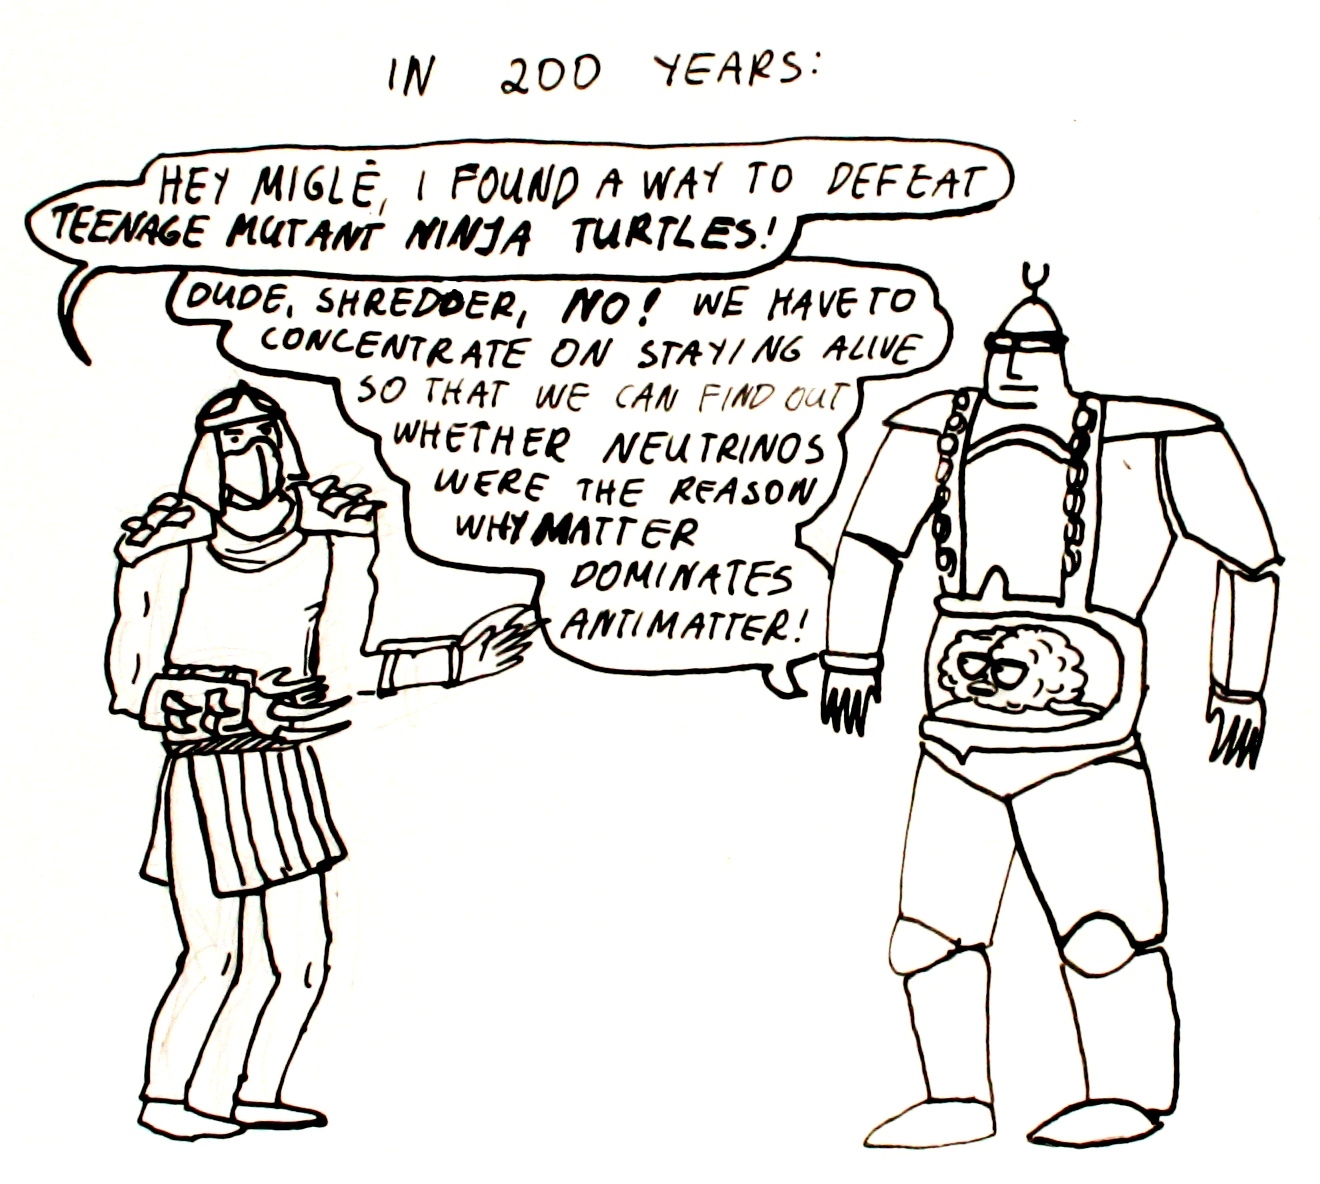 IN 200 YEARS:
HEY MIGLĖ, I FOUND A WAY TO DEFEAT
TEENAGE MUTANT NINJA TURTLES!
DUDE, SHREDDER, NO! WE HAVE TO
CONCENTRATE ON STAYING ALIVE
SO THAT WE CAN FIND OUT
WHETHER NEUTRINOS
WERE THE REASON
WHY MATTER
DOMINATES
ANTIMATTER!